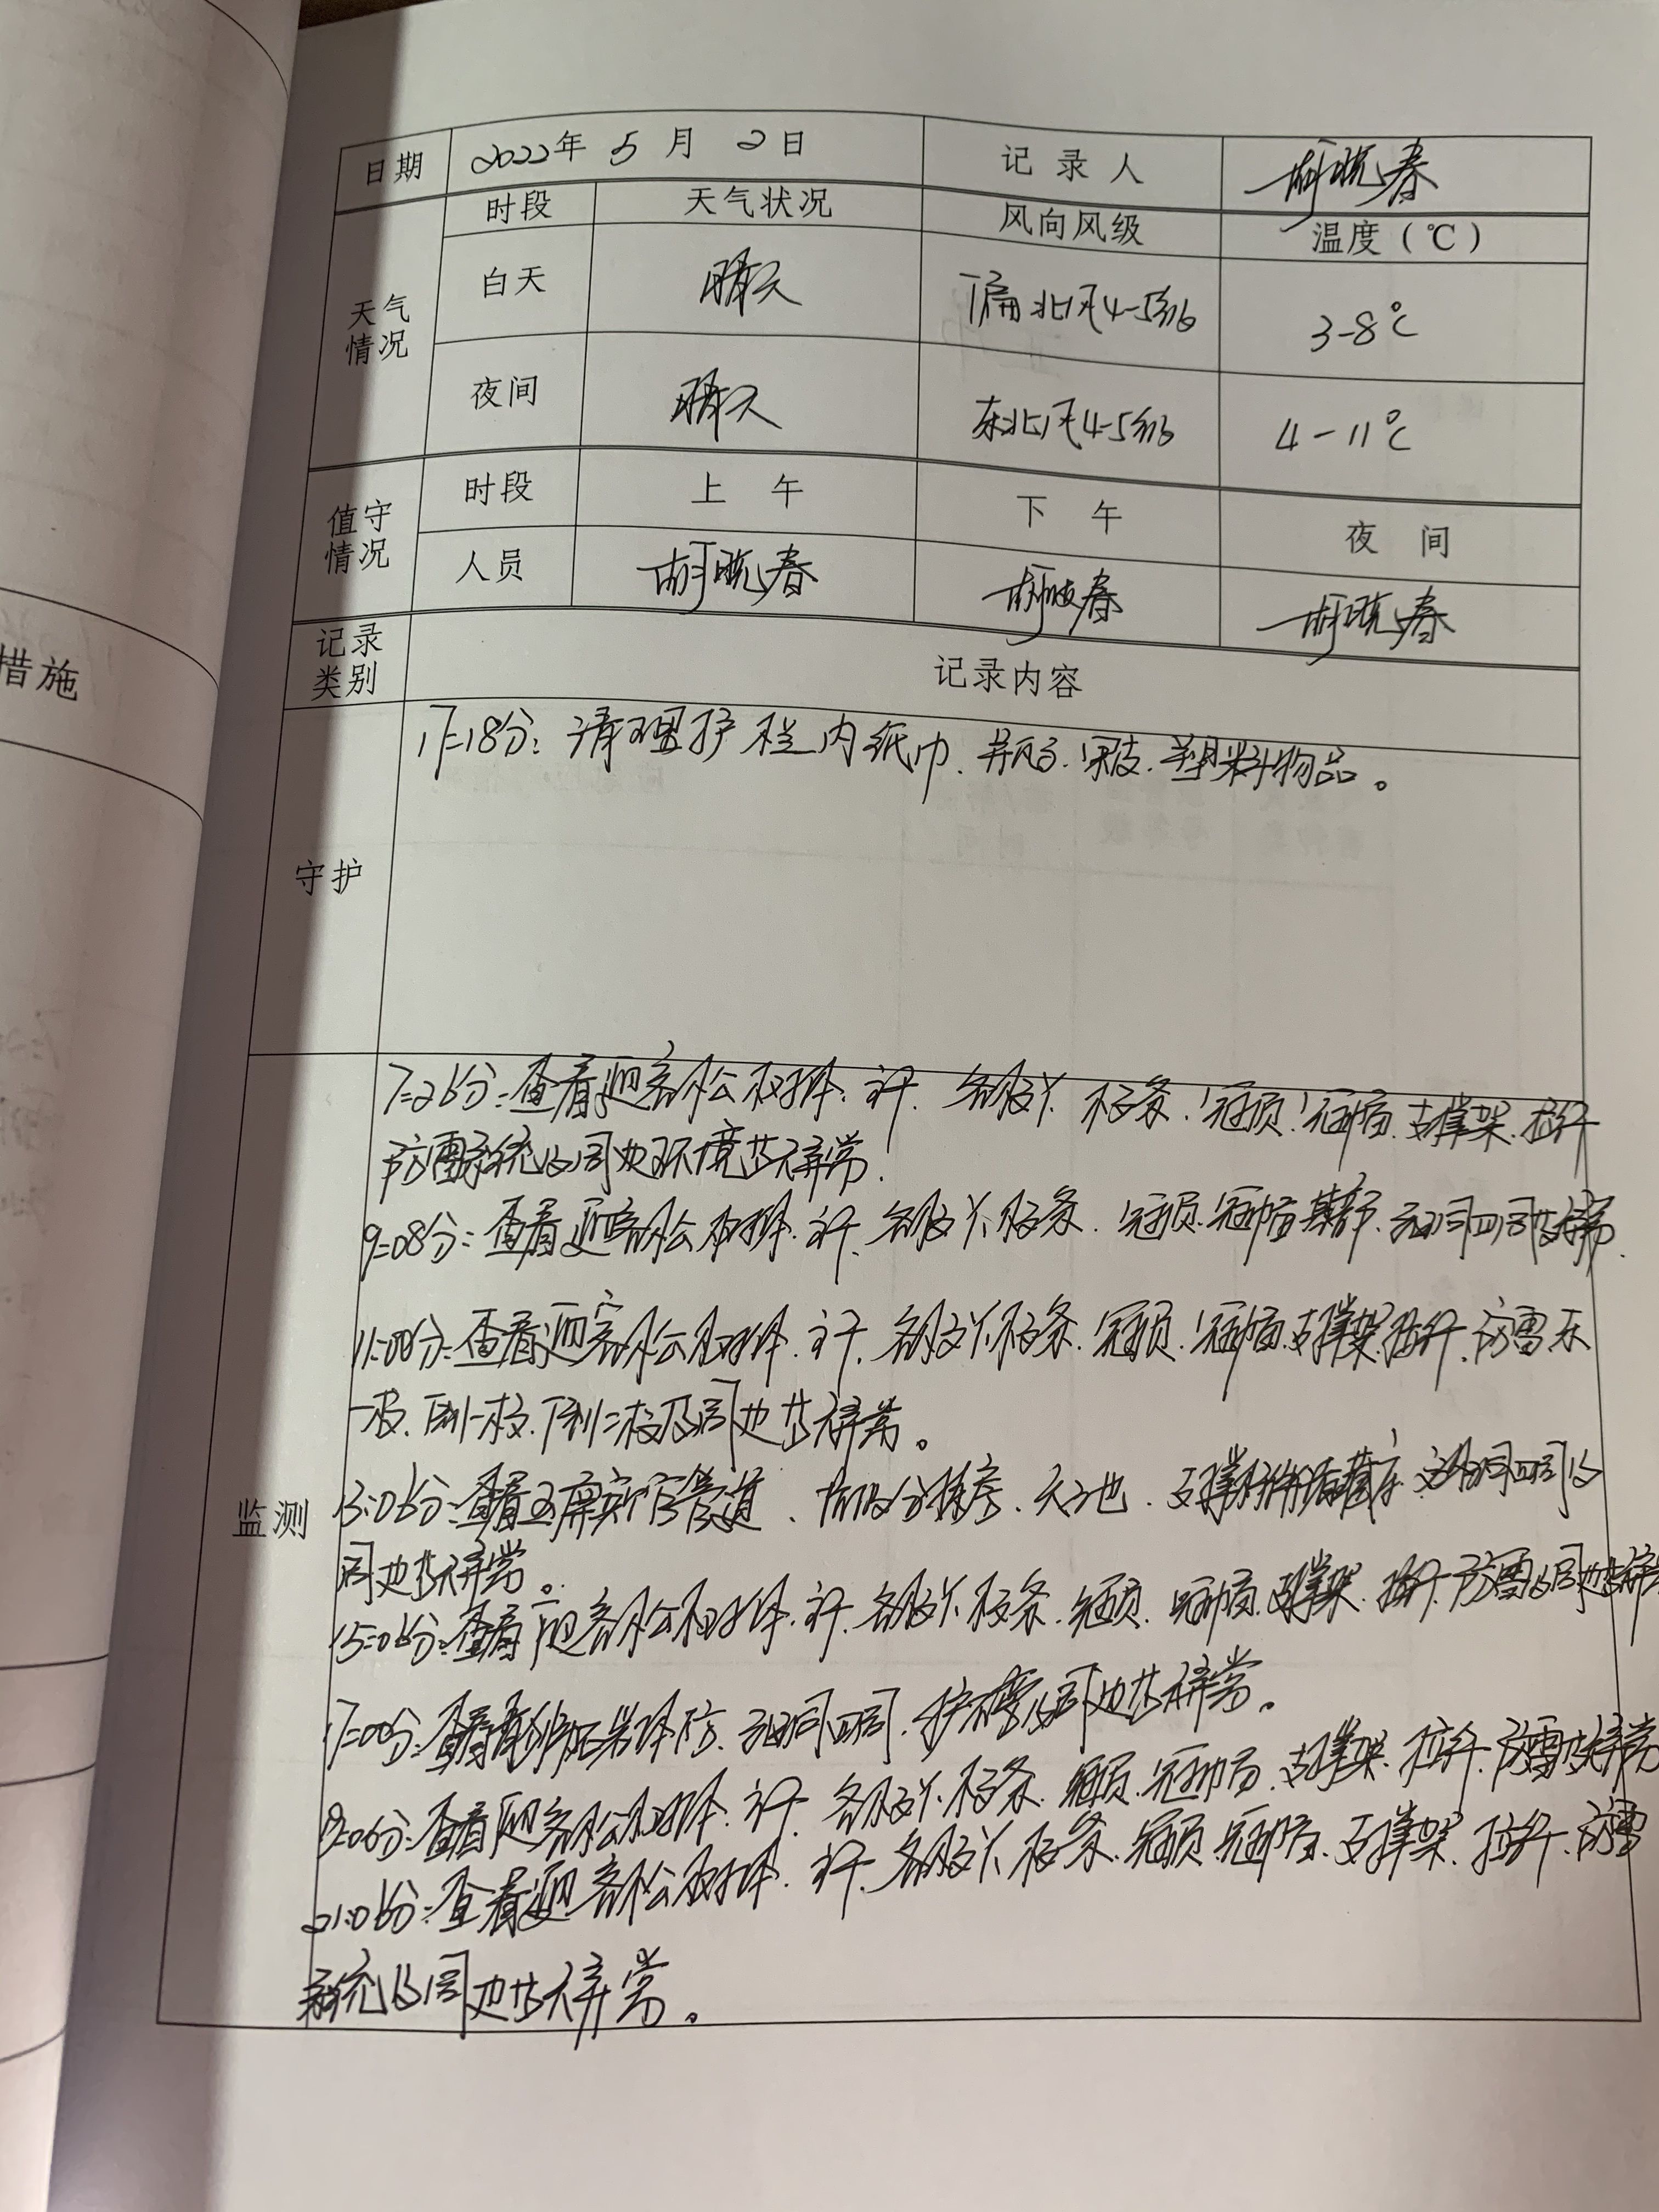 措施
日期 2022年 5 月 2日 记 录 人 胡晓春
天气情况 时段 天气状况 风向风级 温度（℃）
白天 晴天 偏北风4-5级 3-8℃
夜间 晴天 东北风4-5级 4-11℃
值守情况 时段 上 午 下 午 夜 间
人员 胡晓春 胡晓春 胡晓春
记录类别 记录内容
守护
17=18分：清理护栏内纸巾、果皮、塑料物品。
监测
7=26分：查看迎客松树体、主干、各级枝丫、枝条、冠顶、冠幅、支撑架、拉纤
防雷系统及周边环境均无异常.
9=08分：查看迎客松树体、主干、各级枝丫、枝条、冠顶、冠幅、基部、
11=00分：查看迎客松树体、主干、各级枝丫、枝条、冠顶、冠幅、支撑架、拉纤、防雷
及周边均无异常。
13=06分：查看玉屏 管道、天池、
周边均无异常。
15=06分：查看迎客松树体、主干、各级枝丫、枝条、冠顶、冠幅、支撑架、拉纤、防雷及周边
17=00分：查看 及周边均无异常。
19=06分：查看迎客松树体、主干、各级枝丫、枝条、冠顶、冠幅、支撑架、拉纤、防雷均无异常
21:06分：查看迎客松树体、主干、各级枝丫、枝条、冠顶、冠幅、支撑架、拉纤、防雷
系统及周边均无异常。